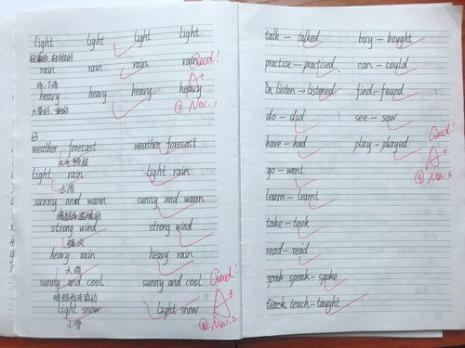 light light light light
rain rain rain rain
heavy heavy heavy heavy
Good!
A+
Nov. 1
B
weather forecast weather forecast
天气预报
light rain light rain
小雨
sunny and warm sunny and warm
strong wind strong wind
强风
heavy rain heavy rain
大雨
sunny and cool sunny and cool
light snow light snow
小雪
Good!
A+
Nov. 2
talk - talked buy - bought
practise - practised can - could
listen - listened find - found
do - did see - saw
have - had play - played
go - went
learn - learnt
take - took
read - read
speak - spoke
teach - taught
Good!
A+